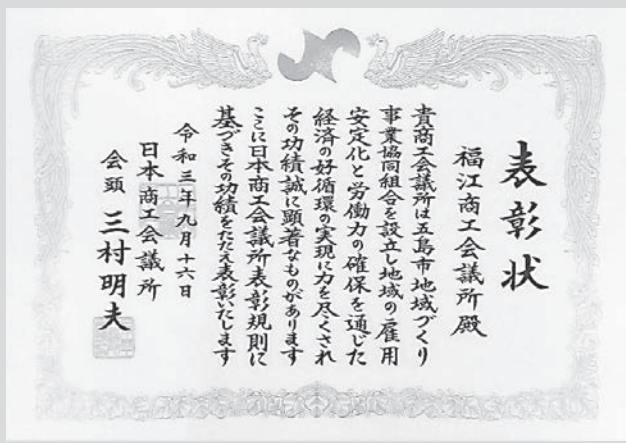 表彰状
福江商工会議所殿
貴商工会議所は五島市地域づくり
事業協同組合を設立し地域の雇用
安定化と労働力の確保を通じた
経済の好循環の実現に力を尽くされ
その功績誠に顕著なものがあります
ここに日本商工会議所表彰規則に
基づきその功績をたたえ表彰いたします
令和三年九月十六日
日本商工会議所
会頭 三村明夫